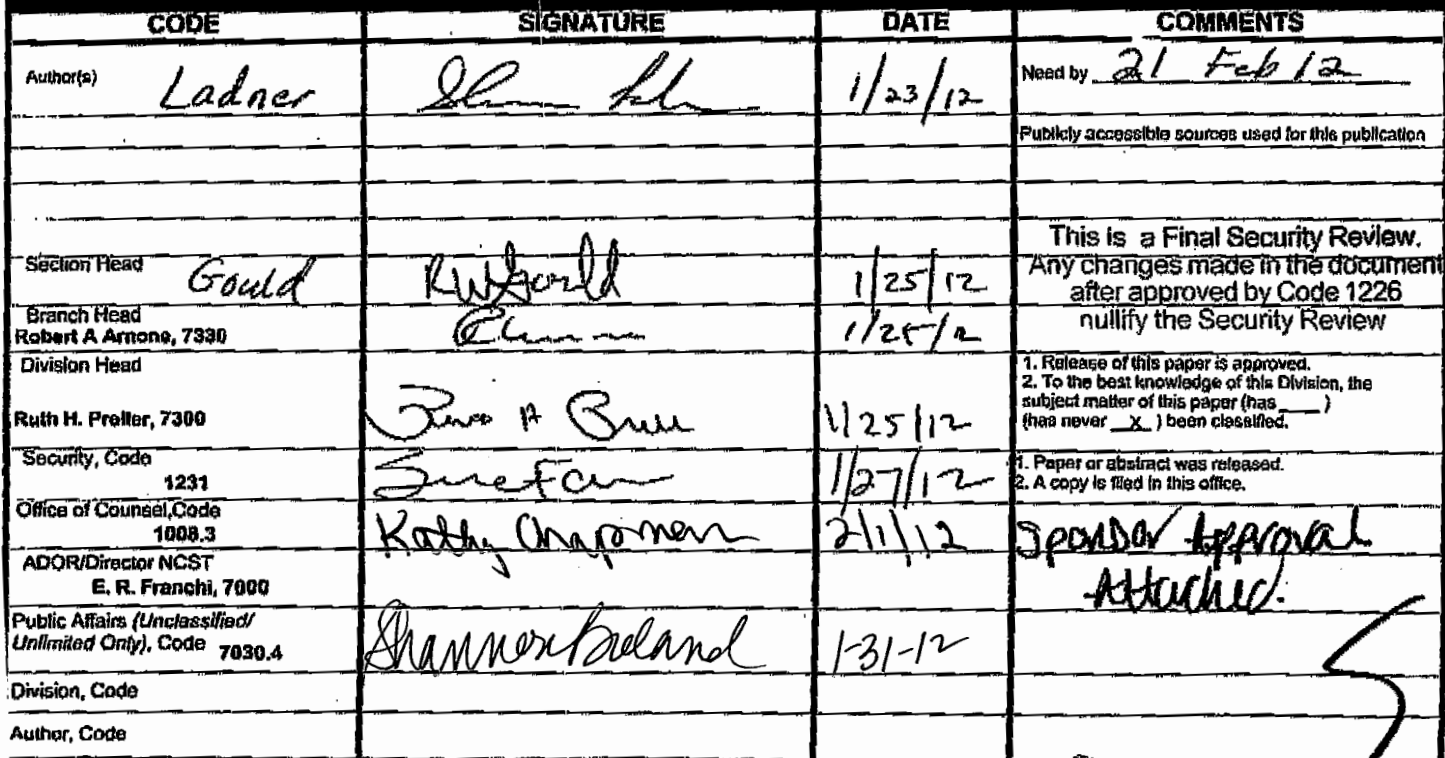 CODE SIGNATURE DATE COMMENTS
Author(s) Ladner 1/23/12 Need by 21 Feb 12
Publicly accessible sources used for this publication
This is a Final Security Review.
Section Head Gould RWGould 1/25/12 Any changes made in the document
after approved by Code 1226
nullify the Security Review
Branch Head
Robert A Arnone, 7330 1/25/12
Division Head
Ruth H. Preller, 7300 1/25/12
1. Release of this paper is approved.
2. To the best knowledge of this Division, the
subject matter of this paper (has ____ )
(has never __x__ ) been classified.
Security, Code
1231 1/27/12
1. Paper or abstract was released.
2. A copy is filed in this office.
Office of Counsel,Code
1008.3 Kathy Chapman 2/1/12 Sponsor Approval
Attached.
ADOR/Director NCST
E. R. Franchi, 7000
Public Affairs (Unclassified/
Unlimited Only), Code 7030.4 Shannon Breland 1-31-12
Division, Code
Author, Code